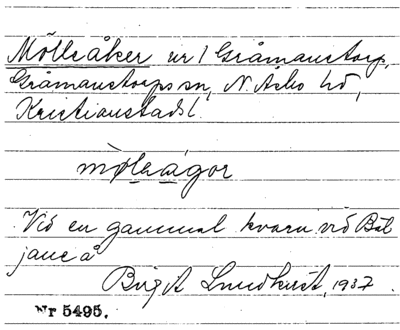 Mölleåker nr 1 Gråmanstorp,
Gråmanstorps sn, N. Åsbo hd,
Kristianstads l.
möleågor
Vid en gammal kvarn vid Bäl
jane å
Birgit Lundkvist, 1937.
Nr 5495.